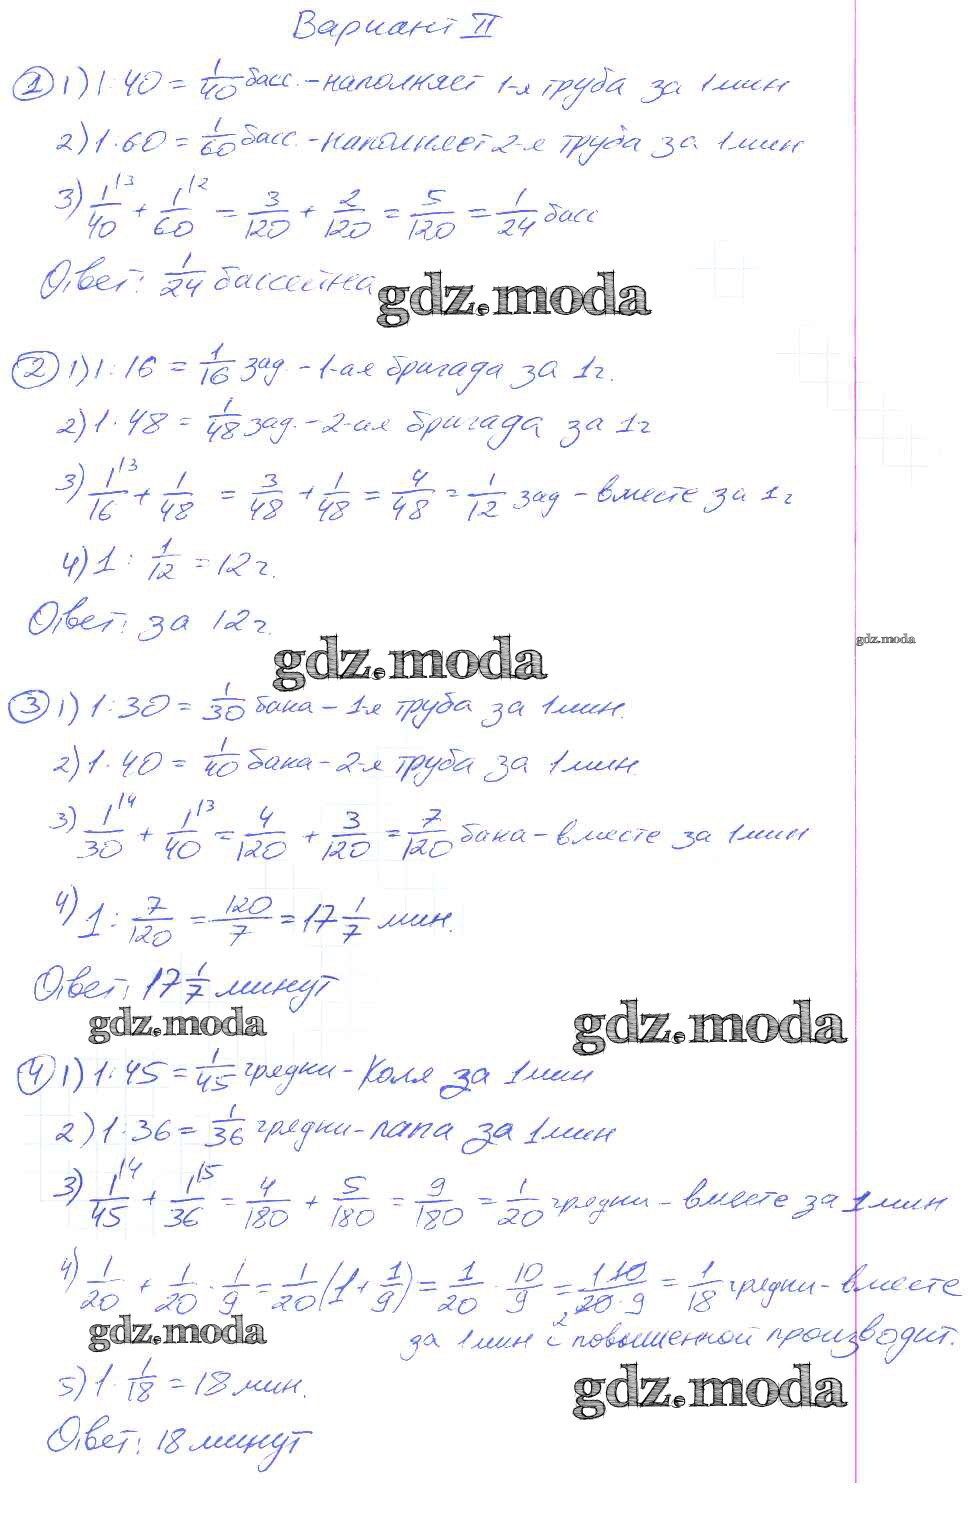 Вариант II
① 1) 1:40 = 1/40 басс. - наполняет 1-я труба за 1 мин
2) 1:60 = 1/60 басс. - наполняет 2-я труба за 1 мин
3) 1\3/40 + 1\2/60 = 3/120 + 2/120 = 5/120 = 1/24 басс
Ответ: 1/24 бассейна
gdz.moda
② 1) 1:16 = 1/16 зад. - 1-ая бригада за 1г.
2) 1:48 = 1/48 зад. - 2-ая бригада за 1г
3) 1\3/16 + 1/48 = 3/48 + 1/48 = 4/48 = 1/12 зад - вместе за 1г
4) 1 : 1/12 = 12г.
Ответ: за 12г.
gdz.moda
gdz.moda
③ 1) 1:30 = 1/30 бака - 1-я труба за 1 мин.
2) 1:40 = 1/40 бака - 2-я труба за 1 мин.
3) 1\4/30 + 1\3/40 = 4/120 + 3/120 = 7/120 бака - вместе за 1 мин
4) 1 : 7/120 = 120/7 = 17 1/7 мин.
Ответ: 17 1/7 минут
gdz.moda
gdz.moda
④ 1) 1:45 = 1/45 грядки - Коля за 1 мин
2) 1:36 = 1/36 грядки - папа за 1 мин
3) 1\4/45 + 1\5/36 = 4/180 + 5/180 = 9/180 = 1/20 грядки - вместе за 1 мин
4) 1/20 + 1/20 · 1/9 = 1/20 (1 + 1/9) = 1/20 · 10/9 = 1·10/20·9 2 = 1/18 грядки - вместе
за 1 мин с повышенной производит.
gdz.moda
5) 1 : 1/18 = 18 мин.
gdz.moda
Ответ: 18 минут